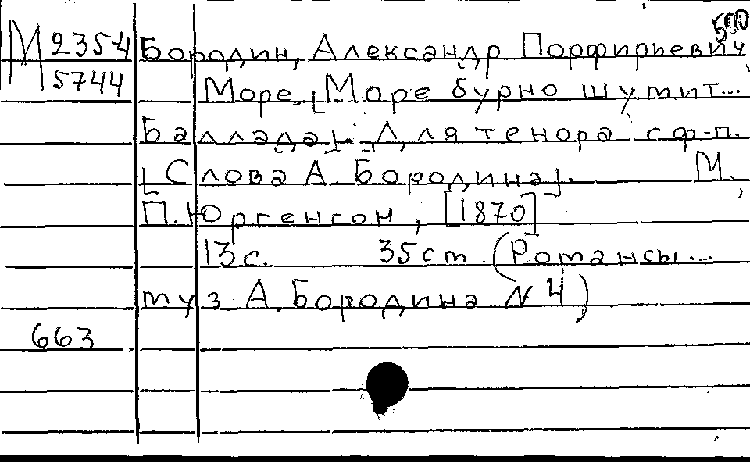 500
М 2354 Бородин, Александр Порфирьевич
5744 Море. [Море бурно шумит...
Баллада]. Для тенора с ф-п.
[Слова А. Бородина]. М.,
П. Юргенсон, [1870]
13 с. 35 cm (Романсы...
муз А. Бородина № 4)
663